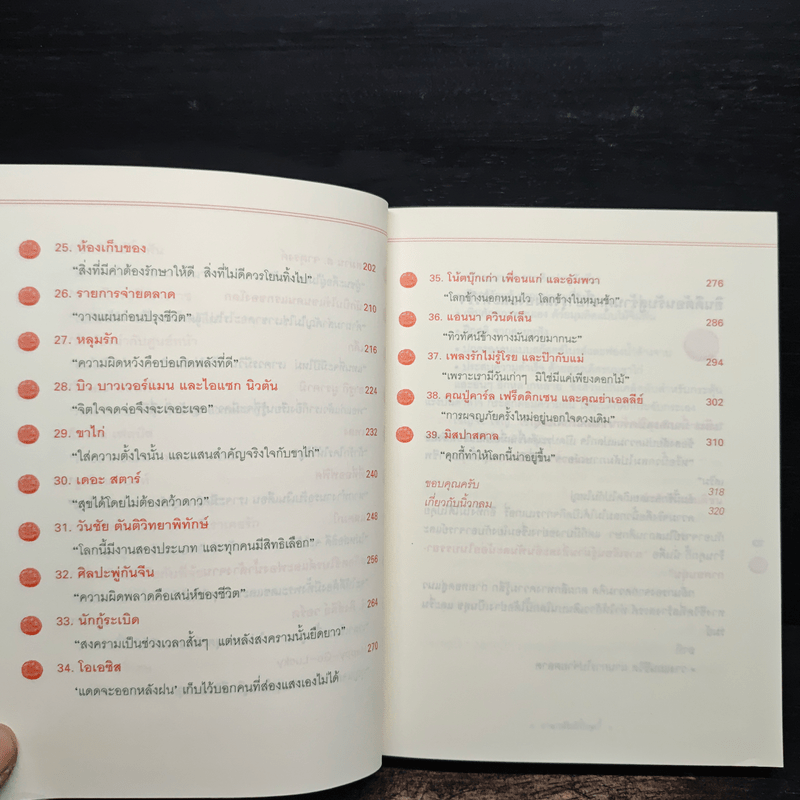 25. ห้องเก็บของ 202
"สิ่งที่มีค่าต้องรักษาให้ดี สิ่งที่ไม่ดีควรโยนทิ้งไป"
26. รายการจ่ายตลาด 210
"วางแผนก่อนปรุงชีวิต"
27. หลุมรัก 216
"ความผิดหวังคือบ่อเกิดพลังที่ดี"
28. บิว บาวเวอร์แมน และไอแซก นิวตัน 224
"จิตใจจดจ่อจึงจะเจอะเจอ"
29. ขาไก่ 232
"ใส่ความตั้งใจนั้น และแสนสำคัญจริงใจกับขาไก่"
30. เดอะ สตาร์ 240
"สุขได้โดยไม่ต้องคว้าดาว"
31. วันชัย ตันติวิทยาพิทักษ์ 248
"โลกนี้มีงานสองประเภท และทุกคนมีสิทธิเลือก"
32. ศิลปะพู่กันจีน 256
"ความผิดพลาดคือเสน่ห์ของชีวิต"
33. นักกู้ระเบิด 264
"สงครามเป็นช่วงเวลาสั้นๆ แต่หลังสงครามนั้นยืดยาว"
34. โอเอซิส 270
'แดดจะออกหลังฝน' เก็บไว้บอกคนที่ส่องแสงเองไม่ได้
35. โน้ตบุ๊กเก่า เพื่อนแก่ และอัมพวา 276
"โลกข้างนอกหมุนไว โลกข้างในหมุนช้า"
36. แอนนา ควินด์เล็น 286
"ทิวทัศน์ข้างทางมันสวยมากนะ"
37. เพลงรักไม่รู้โรย และป๊ากับแม่ 294
"เพราะเรามีวันเก่าๆ มิใช่มีแค่เพียงดอกไม้"
38. คุณปู่คาร์ล เฟร็ดดิกเซน และคุณย่าเอลลี่ย์ 302
"การผจญภัยครั้งใหม่อยู่นอกใจดวงเดิม"
39. มิสปาสคาล 310
"คุกกี้ทำให้โลกนี้น่าอยู่ขึ้น"
ขอบคุณครับ 318
เกี่ยวกับนิ้วกลม 320